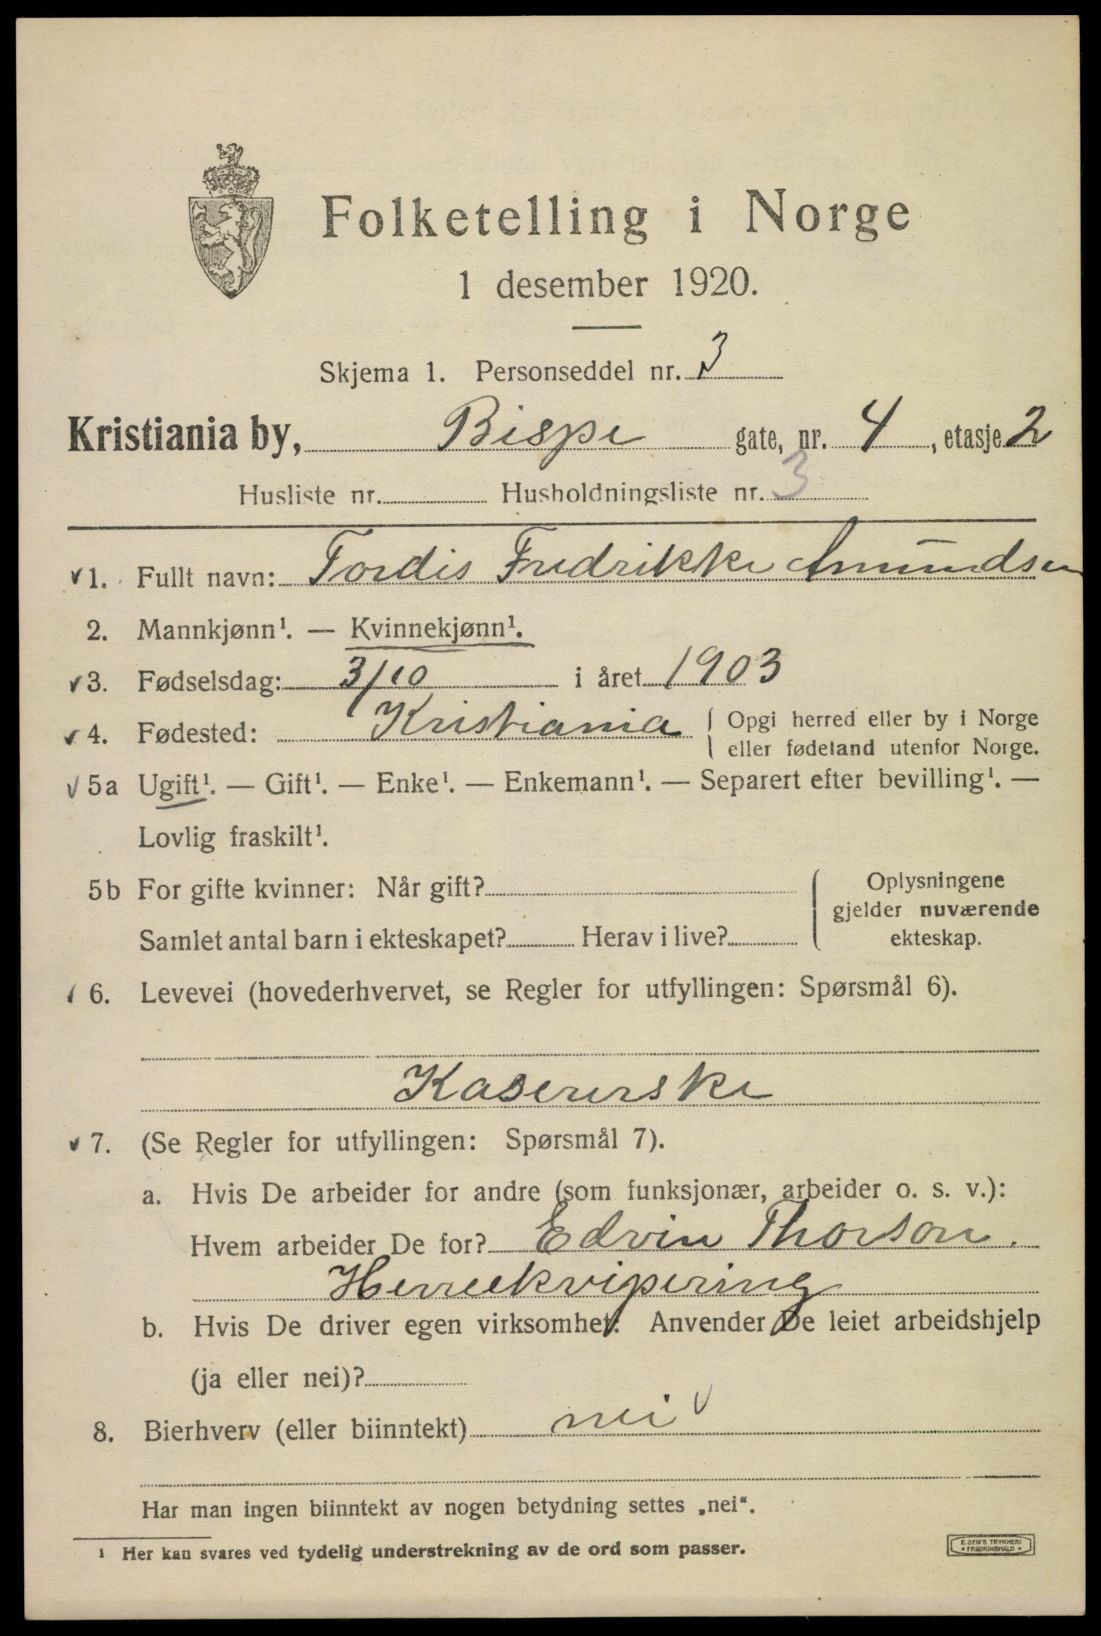 Folketelling i Norge
1 desember 1920.
Skjema 1. Personseddel nr. 3
Kristiania by, Bispe gate, nr. 4, etasje 2
Husliste nr. Husholdningsliste nr. 3
✓ 1. Fullt navn: Tordis Fredrikke Amundsen
2. Mannkjønn¹. — Kvinnekjønn¹.
✓ 3. Fødselsdag: 3/10 i året 1903
✓ 4. Fødested: Kristiania { Opgi herred eller by i Norge
eller fødeland utenfor Norge.
✓ 5a Ugift¹. — Gift¹. — Enke¹. — Enkemann¹. — Separert efter bevilling¹. —
Lovlig fraskilt¹.
5b For gifte kvinner: Når gift? { Oplysningene
gjelder nuværende
Samlet antal barn i ekteskapet? Herav i live? ekteskap.
6. Levevei (hovederhvervet, se Regler for utfyllingen: Spørsmål 6).
Kasererske
✓ 7. (Se Regler for utfyllingen: Spørsmål 7).
a. Hvis De arbeider for andre (som funksjonær, arbeider o. s. v.):
Hvem arbeider De for? Edvin Thorson.
Herreekvipering
b. Hvis De driver egen virksomhet: Anvender De leiet arbeidshjelp
(ja eller nei)?
8. Bierhverv (eller biinntekt) nei ✓
Har man ingen biinntekt av nogen betydning settes „nei“.
¹ Her kan svares ved tydelig understrekning av de ord som passer.
E. SEM'S TRYKKERI
* FREDRIKSHALD *